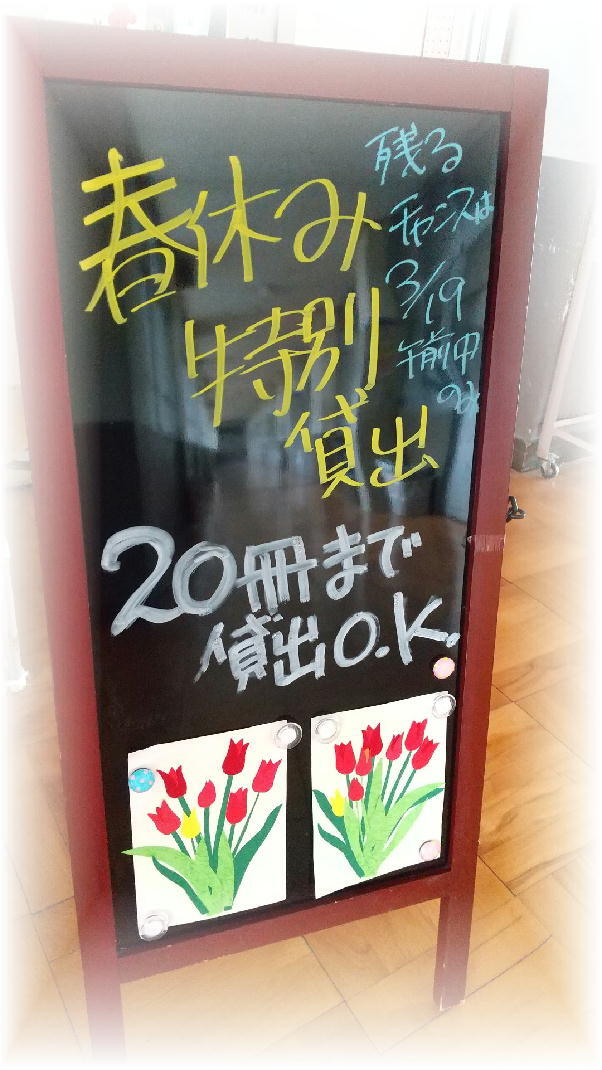 春休み
特別
貸出
残る
チャンスは
3/19
午前中
のみ
20冊まで
貸出O.K.